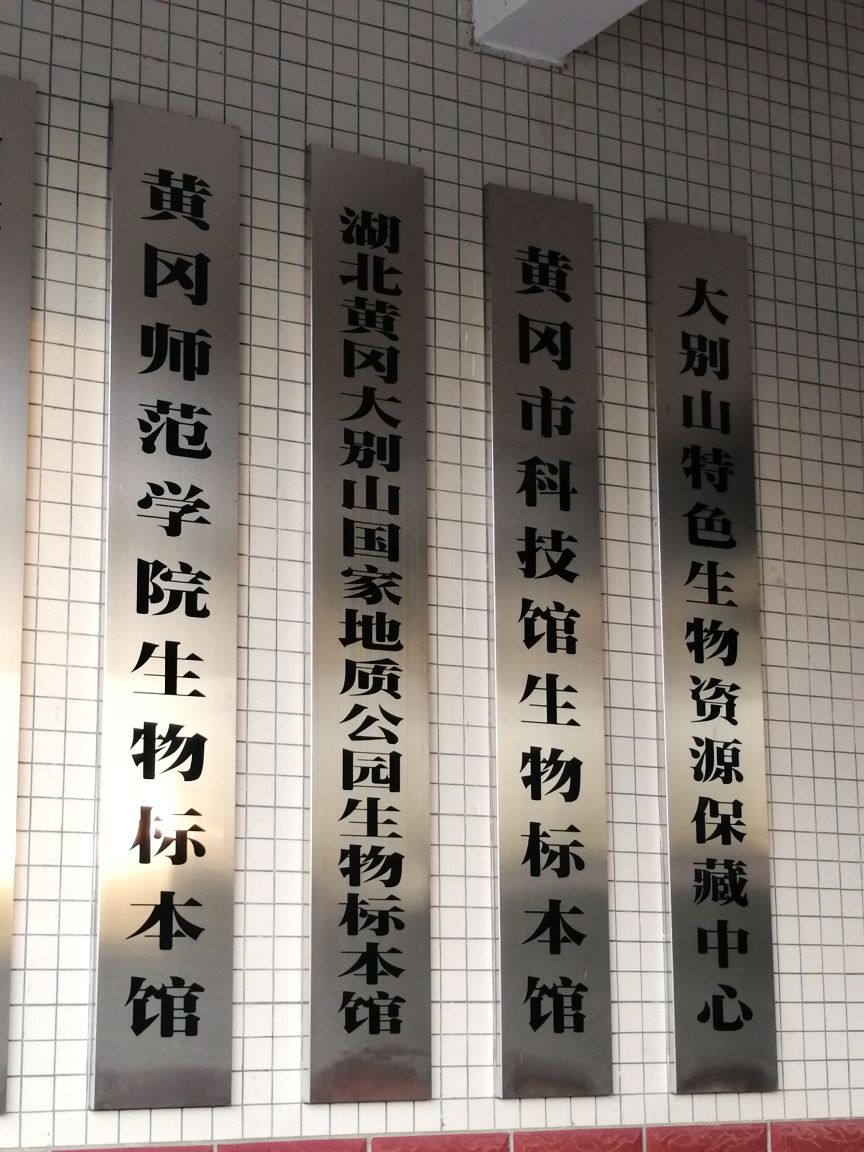 黄冈师范学院生物标本馆
湖北黄冈大别山国家地质公园生物标本馆
黄冈市科技馆生物标本馆
大别山特色生物资源保藏中心